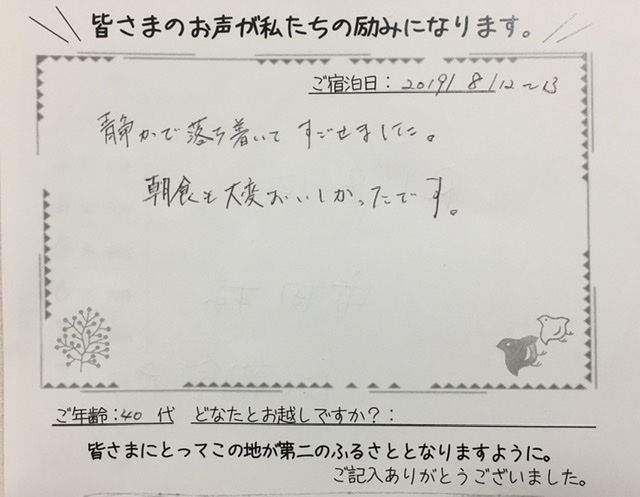 皆さまのお声が私たちの励みになります。
ご宿泊日：2019/8/12〜13
静かで落ち着いてすごせました。
朝食も大変おいしかったです。
ご年齢：40代 どなたとお越しですか？：
皆さまにとってこの地が第二のふるさととなりますように。
ご記入ありがとうございました。